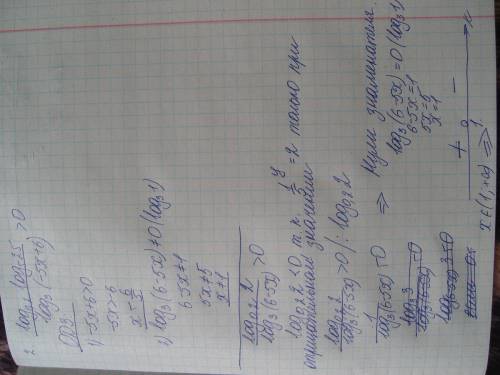 ОДЗ:
1) -5x+6>0
-5x>-6
x<6/5
2) log₃(6-5x)≠0 (log₃1)
6-5x≠1
5x≠5
x≠1
log₀,₂2 / log₃(6-5x) >0
log₀,₂2<0 т.к. =2 только при
отрицательном значении
log₀,₂2 / log₃(6-5x) >0 /: log₀,₂2
1 / log₃(6-5x) <0 => Нули знаменателя.
log₃(6-5x)=0 (log₃1
6-5x=1
5x=5
x=1
+ -
x∈(1,+∞) => 1.